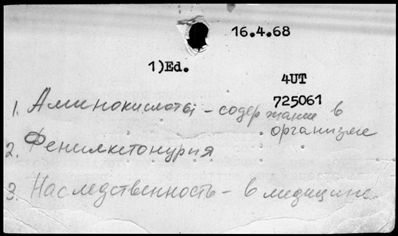 16.4.68
1)Ed.
4UT
725061
1. Аминокислоты - содержание в
организме
2. Фенилкетонурия
3. Наследственность - в медицине